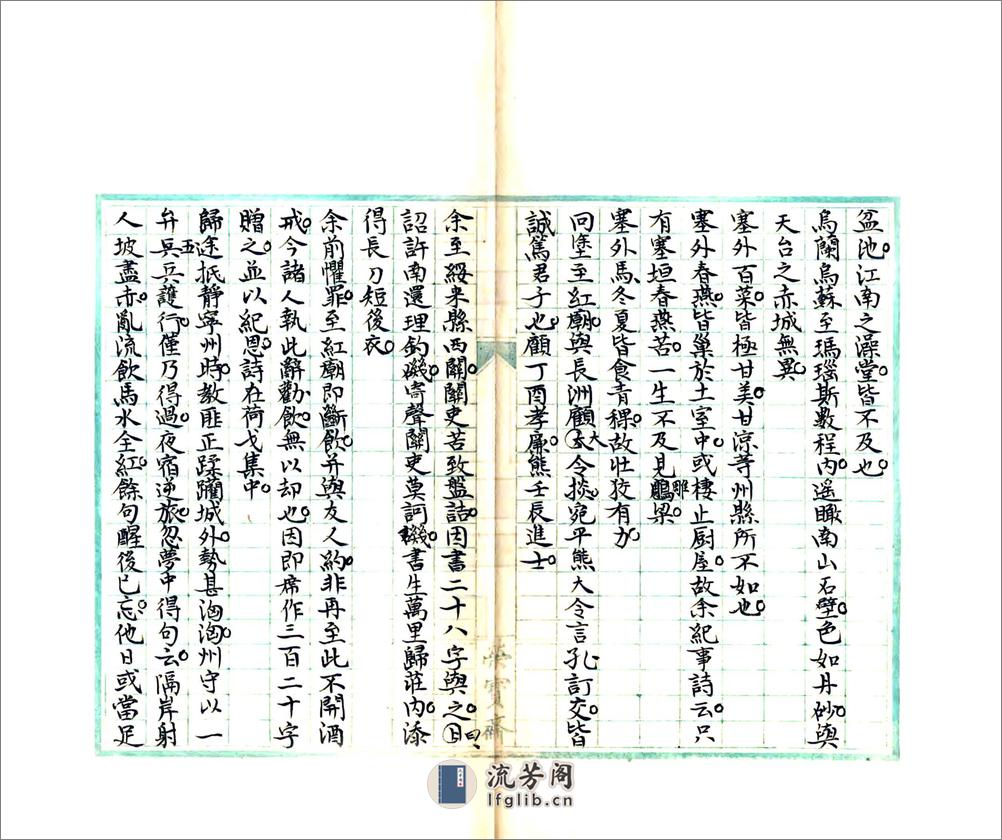 盆池江南之澡堂皆不及也
烏闌烏蘇至瑪瑙斯數程內遥瞰南山石壁色如丹砂與
天台之赤城無異
塞外百菜皆極甘美甘凉等州縣所不如也
塞外春燕皆巢於土室中或棲止厨屋故余紀事詩云只
有塞垣春燕苦一生不及見雕梁
塞外馬冬夏皆食青稞故壮狡有力
同堡至紅廟與長洲顧大令掞宛平熊大令言孔訂交皆
誠篤君子也顧丁酉孝廉熊壬辰進士
余至綏来縣西關關吏苦致盤詰因書二十八字與之曰
詔許南還理釣磯寄聲關吏莫訶譏書生萬里歸莊內添
得長刀短後衣
余前懼罪至紅廟即斷飲并與友人約非再至此不開酒
戒今諸人執此辭勸飲無以却也因即席作三百二十字
贈之並以紀恩詩在荷戈集中
歸途抵靜寧州時教匪正蹂躪城外勢甚洶洶州守以一
弁五兵護行僅乃得過夜宿逆旅忽夢中得句云隔岸射
人坡盡赤亂流飲馬水全紅餘句醒後已忘他日或當足
榮寳齋
流芳阁
lfglib.cn